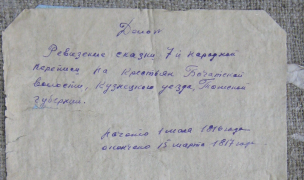 Ревизские сказки 7й народной
переписи на крестьян Бочатской
волости, Кузнецкого уезда, Томской
губернии.
начата 1 мая 1816 года
окончена 15 марта 1817 года